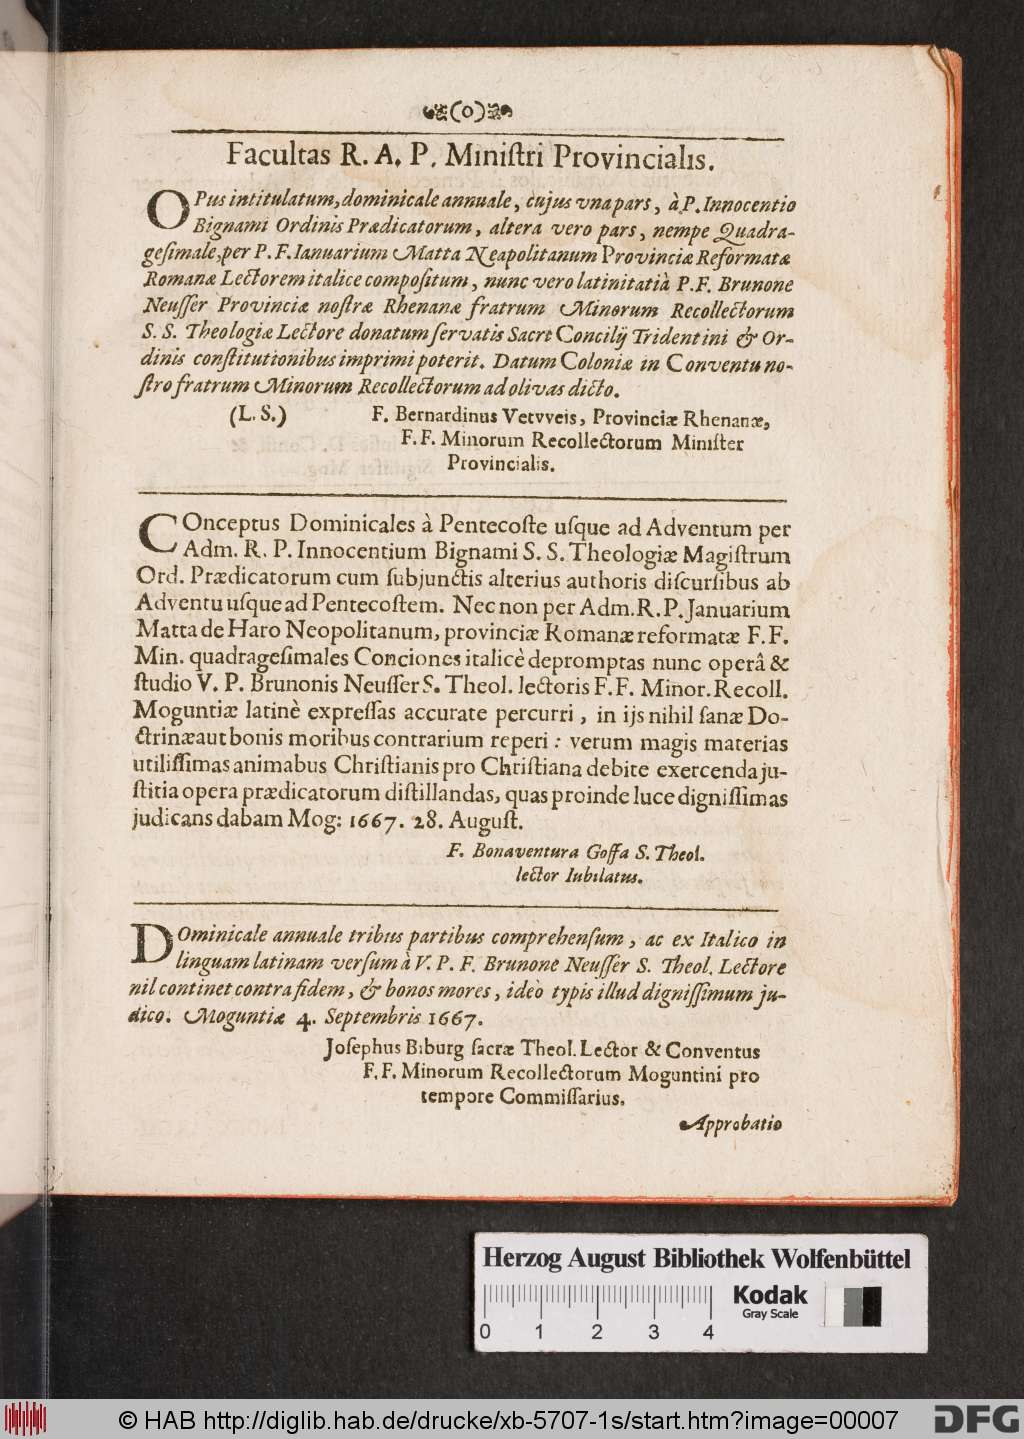 (o)
Facultas R. A. P. Miniſtri Provincialis.
OPus intitulatum, dominicale annuale, cujus vna pars, à P. Innocentio
Bignami Ordinis Prædicatorum, altera vero pars, nempe Quadra-
geſimale, per P. F. Ianuarium Matta Neapolitanum Provinciæ Reformatæ
Romanæ Lectorem italice compoſitum, nunc vero latinitati à P. F. Brunone
Neuſſer Provinciæ noſtræ Rhenanæ fratrum Minorum Recollectorum
S. S. Theologiæ Lectore donatum ſervatis Sacri Concilij Tridentini & Or-
dinis conſtitutionibus imprimi poterit. Datum Coloniæ in Conventu no-
ſtro fratrum Minorum Recollectorum ad olivas dicto.
(L. S.) F. Bernardinus Vetvveis, Provinciæ Rhenanæ,
F. F. Minorum Recollectorum Miniſter
Provincialis.
COnceptus Dominicales à Pentecoſte uſque ad Adventum per
Adm. R. P. Innocentium Bignami S. S. Theologiæ Magiſtrum
Ord. Prædicatorum cum ſubjunctis alterius authoris diſcurſibus ab
Adventu uſque ad Pentecoſtem. Nec non per Adm. R. P. Januarium
Matta de Haro Neopolitanum, provinciæ Romanæ reformatæ F. F.
Min. quadrageſimales Conciones italicè depromptas nunc operâ &
ſtudio V. P. Brunonis Neuſſer S. Theol. lectoris F. F. Minor. Recoll.
Moguntiæ latinè expreſſas accurate percurri, in ijs nihil ſanæ Do-
ctrinæ aut bonis moribus contrarium reperi: verum magis materias
utiliſſimas animabus Chriſtianis pro Chriſtiana debite exercenda ju-
ſtitia opera prædicatorum diſtillandas, quas proinde luce digniſſimas
judicans dabam Mog: 1667. 28. Auguſt.
F. Bonaventura Goſſa S. Theol.
lector Iubilatus.
DOminicale annuale tribus partibus comprehenſum, ac ex Italico in
linguam latinam verſum à V. P. F. Brunone Neuſſer S. Theol. Lectore
nil continet contra fidem, & bonos mores, ideò typis illud digniſſimum ju-
dico. Moguntiæ 4. Septembris 1667.
Joſephus Biburg ſacræ Theol. Lector & Conventus
F. F. Minorum Recollectorum Moguntini pro
tempore Commiſſarius.
Approbatio
Herzog August Bibliothek Wolfenbüttel
Kodak
Gray Scale
0 1 2 3 4
© HAB http://diglib.hab.de/drucke/xb-5707-1s/start.htm?image=00007
DFG